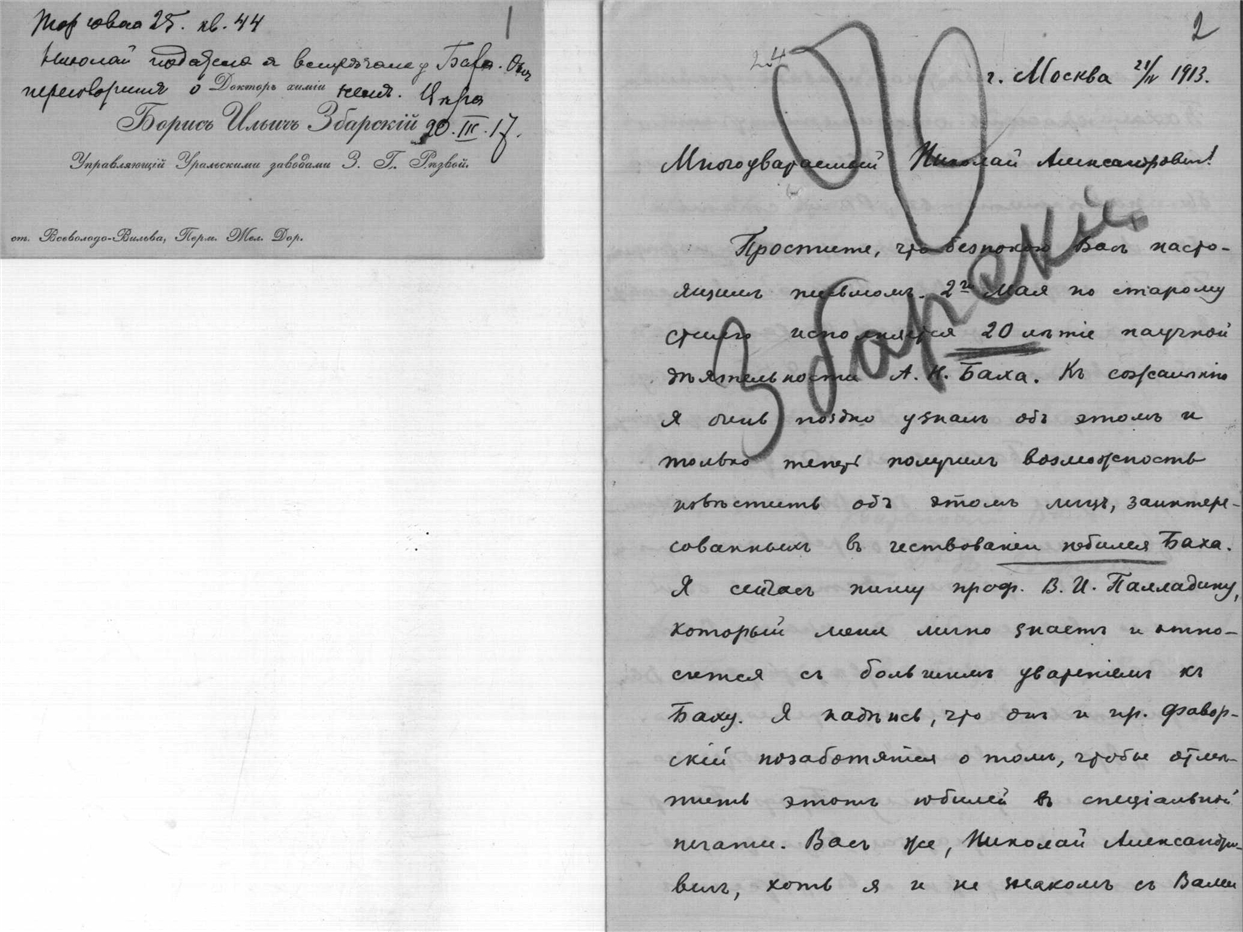 Торговая 25. кв. 44
1
Николай
переговорить о
Докторъ химіи
Борисъ Ильичъ Збарскій
20. III. 17.
Управляющій Уральскими заводами З. Г. Рѣзвой.
ст. Всеволодо-Вильва, Перм. Жел. Дор.
2
24
г. Москва 21/IV 1913.
Многоуважаемый Николай Александровичъ!
Збарский
Простите, что безпокою Васъ насто-
ящимъ письмомъ. 2го Мая по старому
стилю исполняется 20 лѣтіе научной
дѣятельности А. Н. Баха. Къ сожалѣнію
я очень поздно узналъ объ этомъ и
только теперь получилъ возможность
извѣстить объ этомъ лицъ, заинтере-
сованныхъ въ чествованіи юбилея Баха.
Я сейчасъ пишу проф. В. И. Палладину,
который меня лично знаетъ и отно-
сится съ большимъ уваженіемъ къ
Баху. Я надѣюсь, что онъ и пр. Фавор-
скій позаботятся о томъ, чтобы отмѣ-
тить этотъ юбилей въ спеціальной
печати. Васъ же, Николай Александро-
вичъ, хоть я и не знакомъ съ Вами